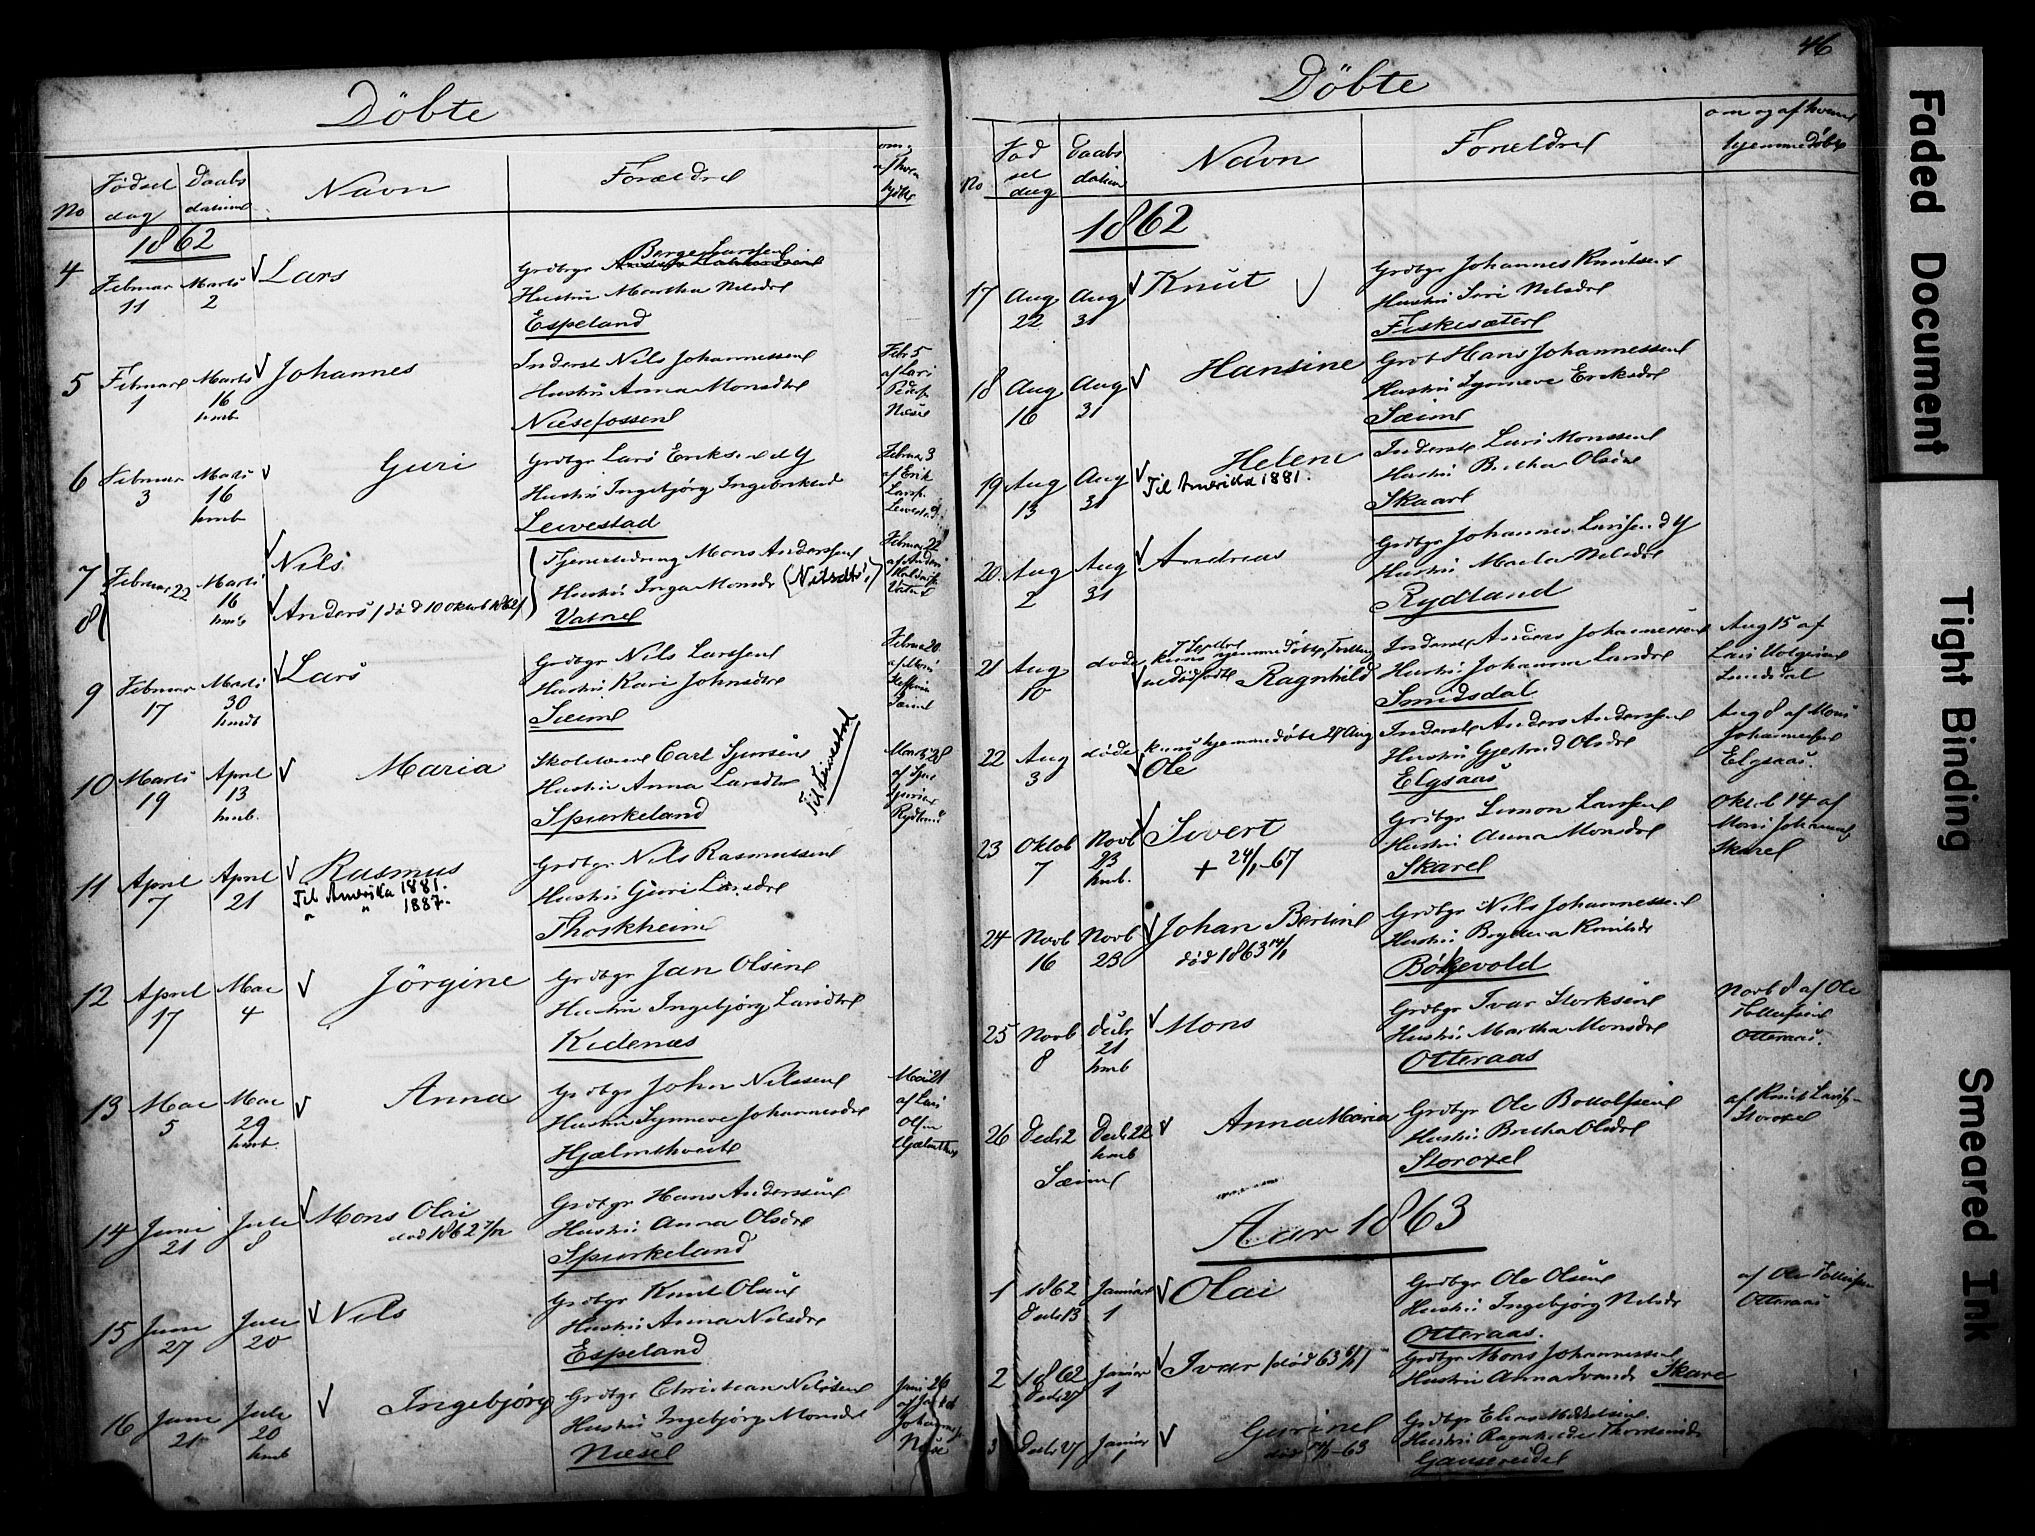 Döbte
No
Födsel dag
Daabs datum
Navn
Forældre
1862
4 Februar 11 Marts 2 Lars
Grdbrgr Børge Larssen
Hustru Martha Nilsdtr
Espeland
5 Februar 1 Marts 16 hmb Johannes
Inderst Nils Johannessen
Hustru Anna Monsdtr
Næsefossen
Febr 5 af Lars Peders Næse
6 Februar 3 Marts 16 hmb Guri
Grdbgr Lars Eriksen d y
Hustru Ingebjörg Ingebriktsd
Levestad
Februar 3 af Erik Larss. Levestad
7 8 Februar 22 Marts 16 hmb
Nils
Anders / död 10 oktob 1862/
Tjenestedreng Mons Anderssen
Hustru Inga Monsdr (Nilsdtr!)
Vatne
Februar 22
9 Februar 17 Marts 30 hmdt Lars
Grdbgr Nils Larssen
Hustru Kari Johnsdtr
Sæim
Februar 20
10 Marts 19 April 13 hmb. Maria
Skolelærer Carl Sjursen
Hustru Anna Larsdtr
Spurkeland
Til Leivestad
Marts 28 af Sjur Rydland
11 April 7 April 21 Rasmus
Til Amerika 1881.
" " 1887.
Grdbgr Nils Rasmussen
Hustru Guri Larsdtr
Thoskheim
12 April 17 Mai 4 Jörgine
Grdbgr Jan Olsen
Hustru Ingebjörg Larsdtr
Kidenæs
13 Mai 5 Mai 29 hmb. Anna
Grdbgr John Nilssen
Hustru Synneve Johannesdtr
Hjælmthveit
Mai 21 af Lars Olsen
14 Juni 21 Juli 8 Mons Olai
död 1862
Grdbgr Hans Anderssen
Hustru Anna Olsdtr
Spurkeland
15 Juni 27 Juli 20 Nils
Grdbgr Knut Olsen
Hustru Anna Nilsdtr
Espeland
16 Juni 21 Juli 20 hmb Ingebjörg
Grdbgr Christian Nilssen
Hustru Ingebjörg Monsdtr
Næse
Juni 26
46
Döbte
No
Föd sel dag
Daabs datum
Navn
Forældre
om og af hvem hjemmedöbt
1862
17 Aug 22 Aug 31 Knut
Grdbgr Johannes Knutsen
Hustru Siri Nilsdtr
Fiskesæter
18 Aug 16 Aug 31 Hansine
Grdb Hans Johannessen
Hustru Synneve Eriksdtr
Sæim
19 Aug 13 Aug 31 Helene
Til Amerika 1881.
Inderst Lars Monssen
Hustru Bretha Olsdtr
Skaar
20 Aug 2 Aug 31 Andreas
Grdbgr Johannes Larssen d y
Hustru Marta Nilsdtr
Rydland
21 Aug 10 döde
Ragnhild
Inderst Anders Johannessen
Hustru Johanna Larsdtr
Smidsdal
Aug 15 af Lars
22 Aug 3 döde kuns hjemmedöbt 27 Aug
Ole
Inderst Anders Anderssen
Hustru Gjertrud Olsdtr
Elgsaas
Aug 8 af Mons Johannessen Elgsaas.
23 Oktob 7 Novb 23 hmb. Sivert
+ 24/1-67
Grdbgr Simon Larssen
Hustru Anna Monsdtr
Skare
Oktob 14 af Mons Johannes Skare
24 Novb 16 Novb 23 Johan Bertin
död 1863
Grdbgr Nils Johannessen
Hustru Brytteva Knutsdr
Bökevold
25 Novb 8 Decbr 21 hmb Mons
Grdbgr Ivar Storksen
Hustru Martha Monsdtr
Otteraas
Novb 8 af Ole Tollefsen Otteraas.
26 Decbr 2 Decbr 22 hmb Anna Maria
Sæim
Grdbgr Ole Botolfsen
Hustru Bretha Olsdtr
Storoxel
af Knut Larss Storoxel
Aar 1863
1 1862 Decbr 13 Januar 1 Olai
Grdbgr Ole Olsen
Hustru Ingebjörg Nilsdr
Otteraas.
af Ole Tollefsen Otteraas
2 1862 Decbr 27 Januar 1 Ivar
Grdbgr Mons Johannessen
Hustru Anna Ivarsdr Skare
3 Decbr 27 Januar 1 Gurine
Grdbgr Elias Mikkelsen
Hustru Ragnhilde Thorsteinsdr
Gausereidet
Faded Document
Tight Binding
Smeared Ink